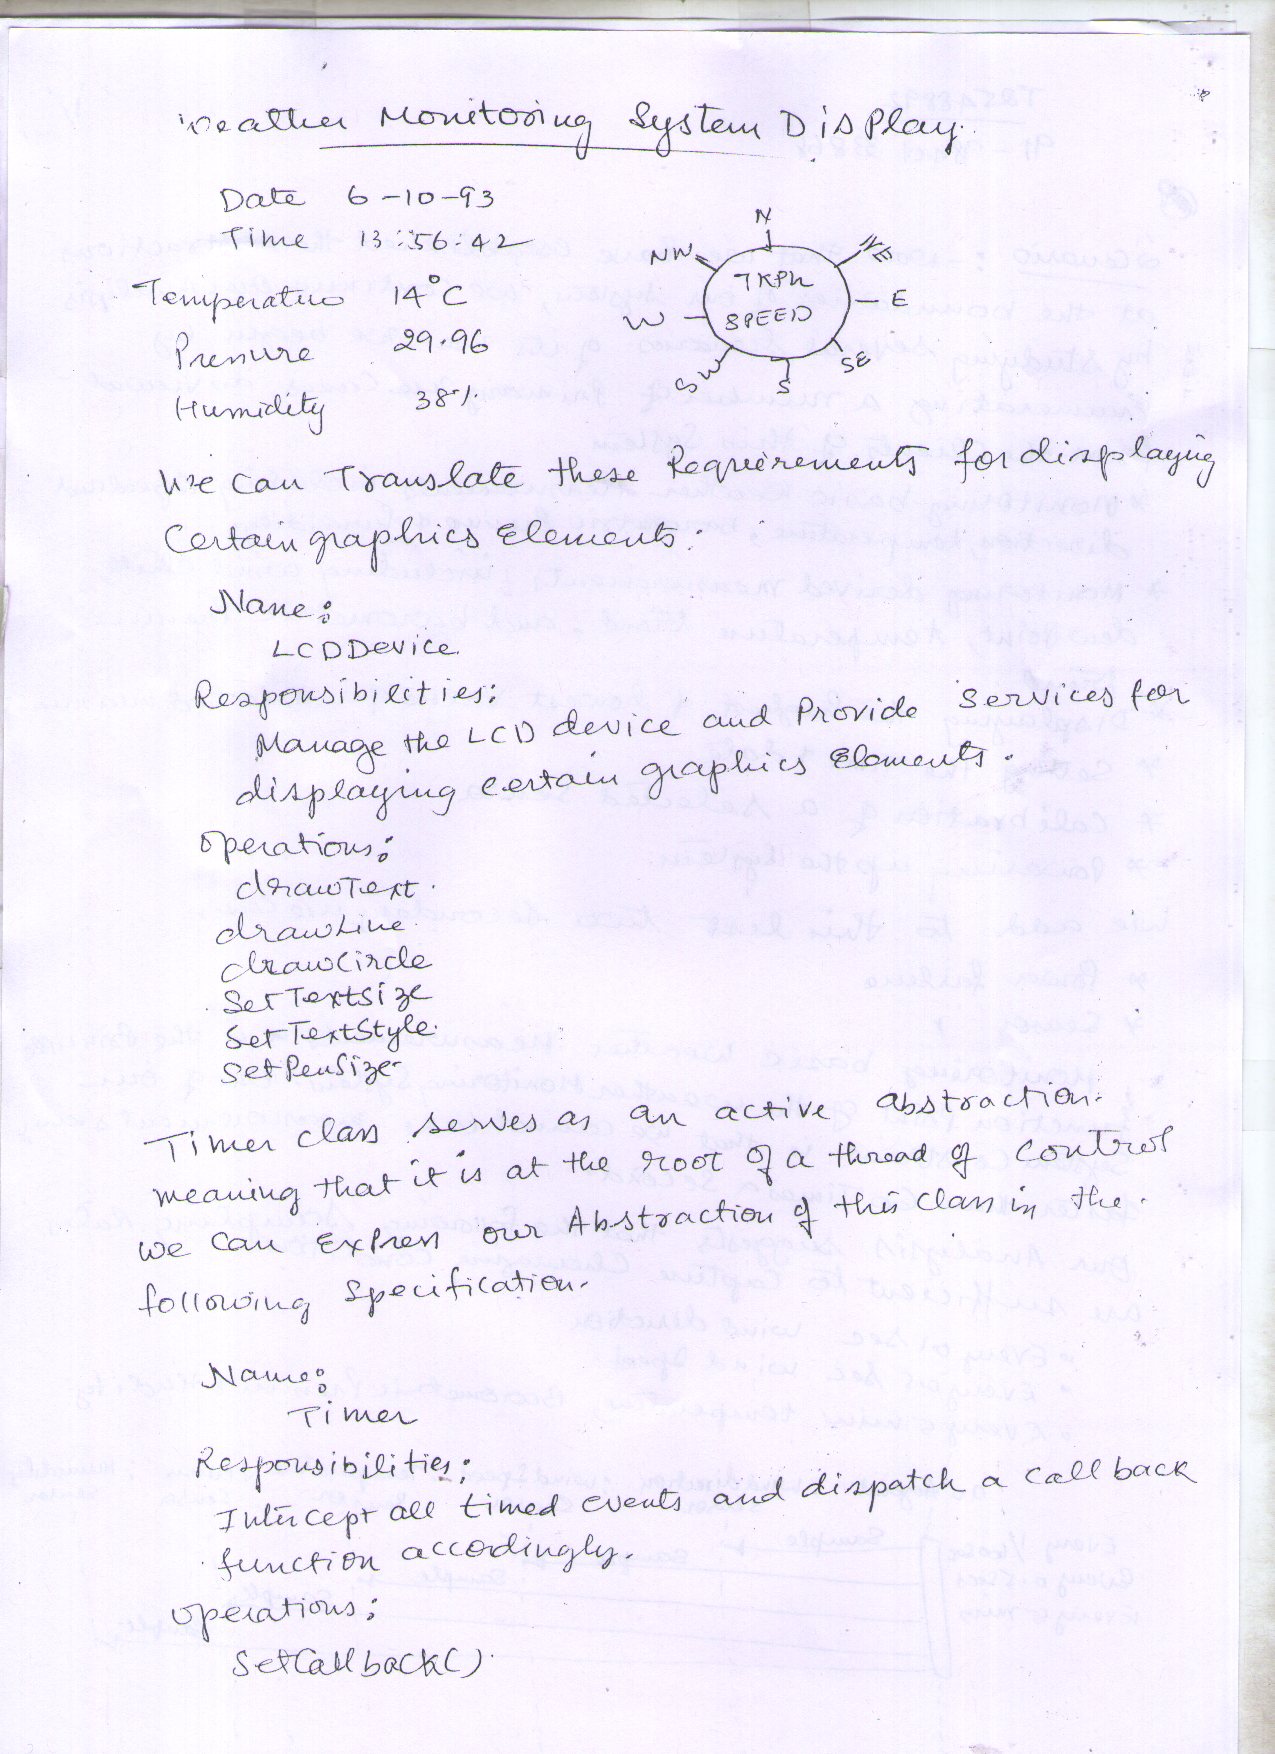 Weather Monitoring System Display.
Date 6-10-93
Time 13:56:42
Temperature 14°C
Pressure 29.96
Humidity 38%
N
NW
NE
7KPh
W
E
SPEED
SW
SE
S
We can Translate these Requirements for displaying
Certain graphics Elements:
Name:
LCDDevice
Responsibilities:
Manage the LCD device and Provide Services for
displaying certain graphics Elements.
Operations:
drawText.
drawLine
drawCircle
SetTextSize
SetTextStyle.
SetPenSize
Timer class serves as an active abstraction.
meaning that it is at the root of a thread of control
we can Express our Abstraction of this class in the.
following specification.
Name:
Timer
Responsibilities:
Intercept all timed events and dispatch a call back
function accordingly.
operations:
SetCallback().